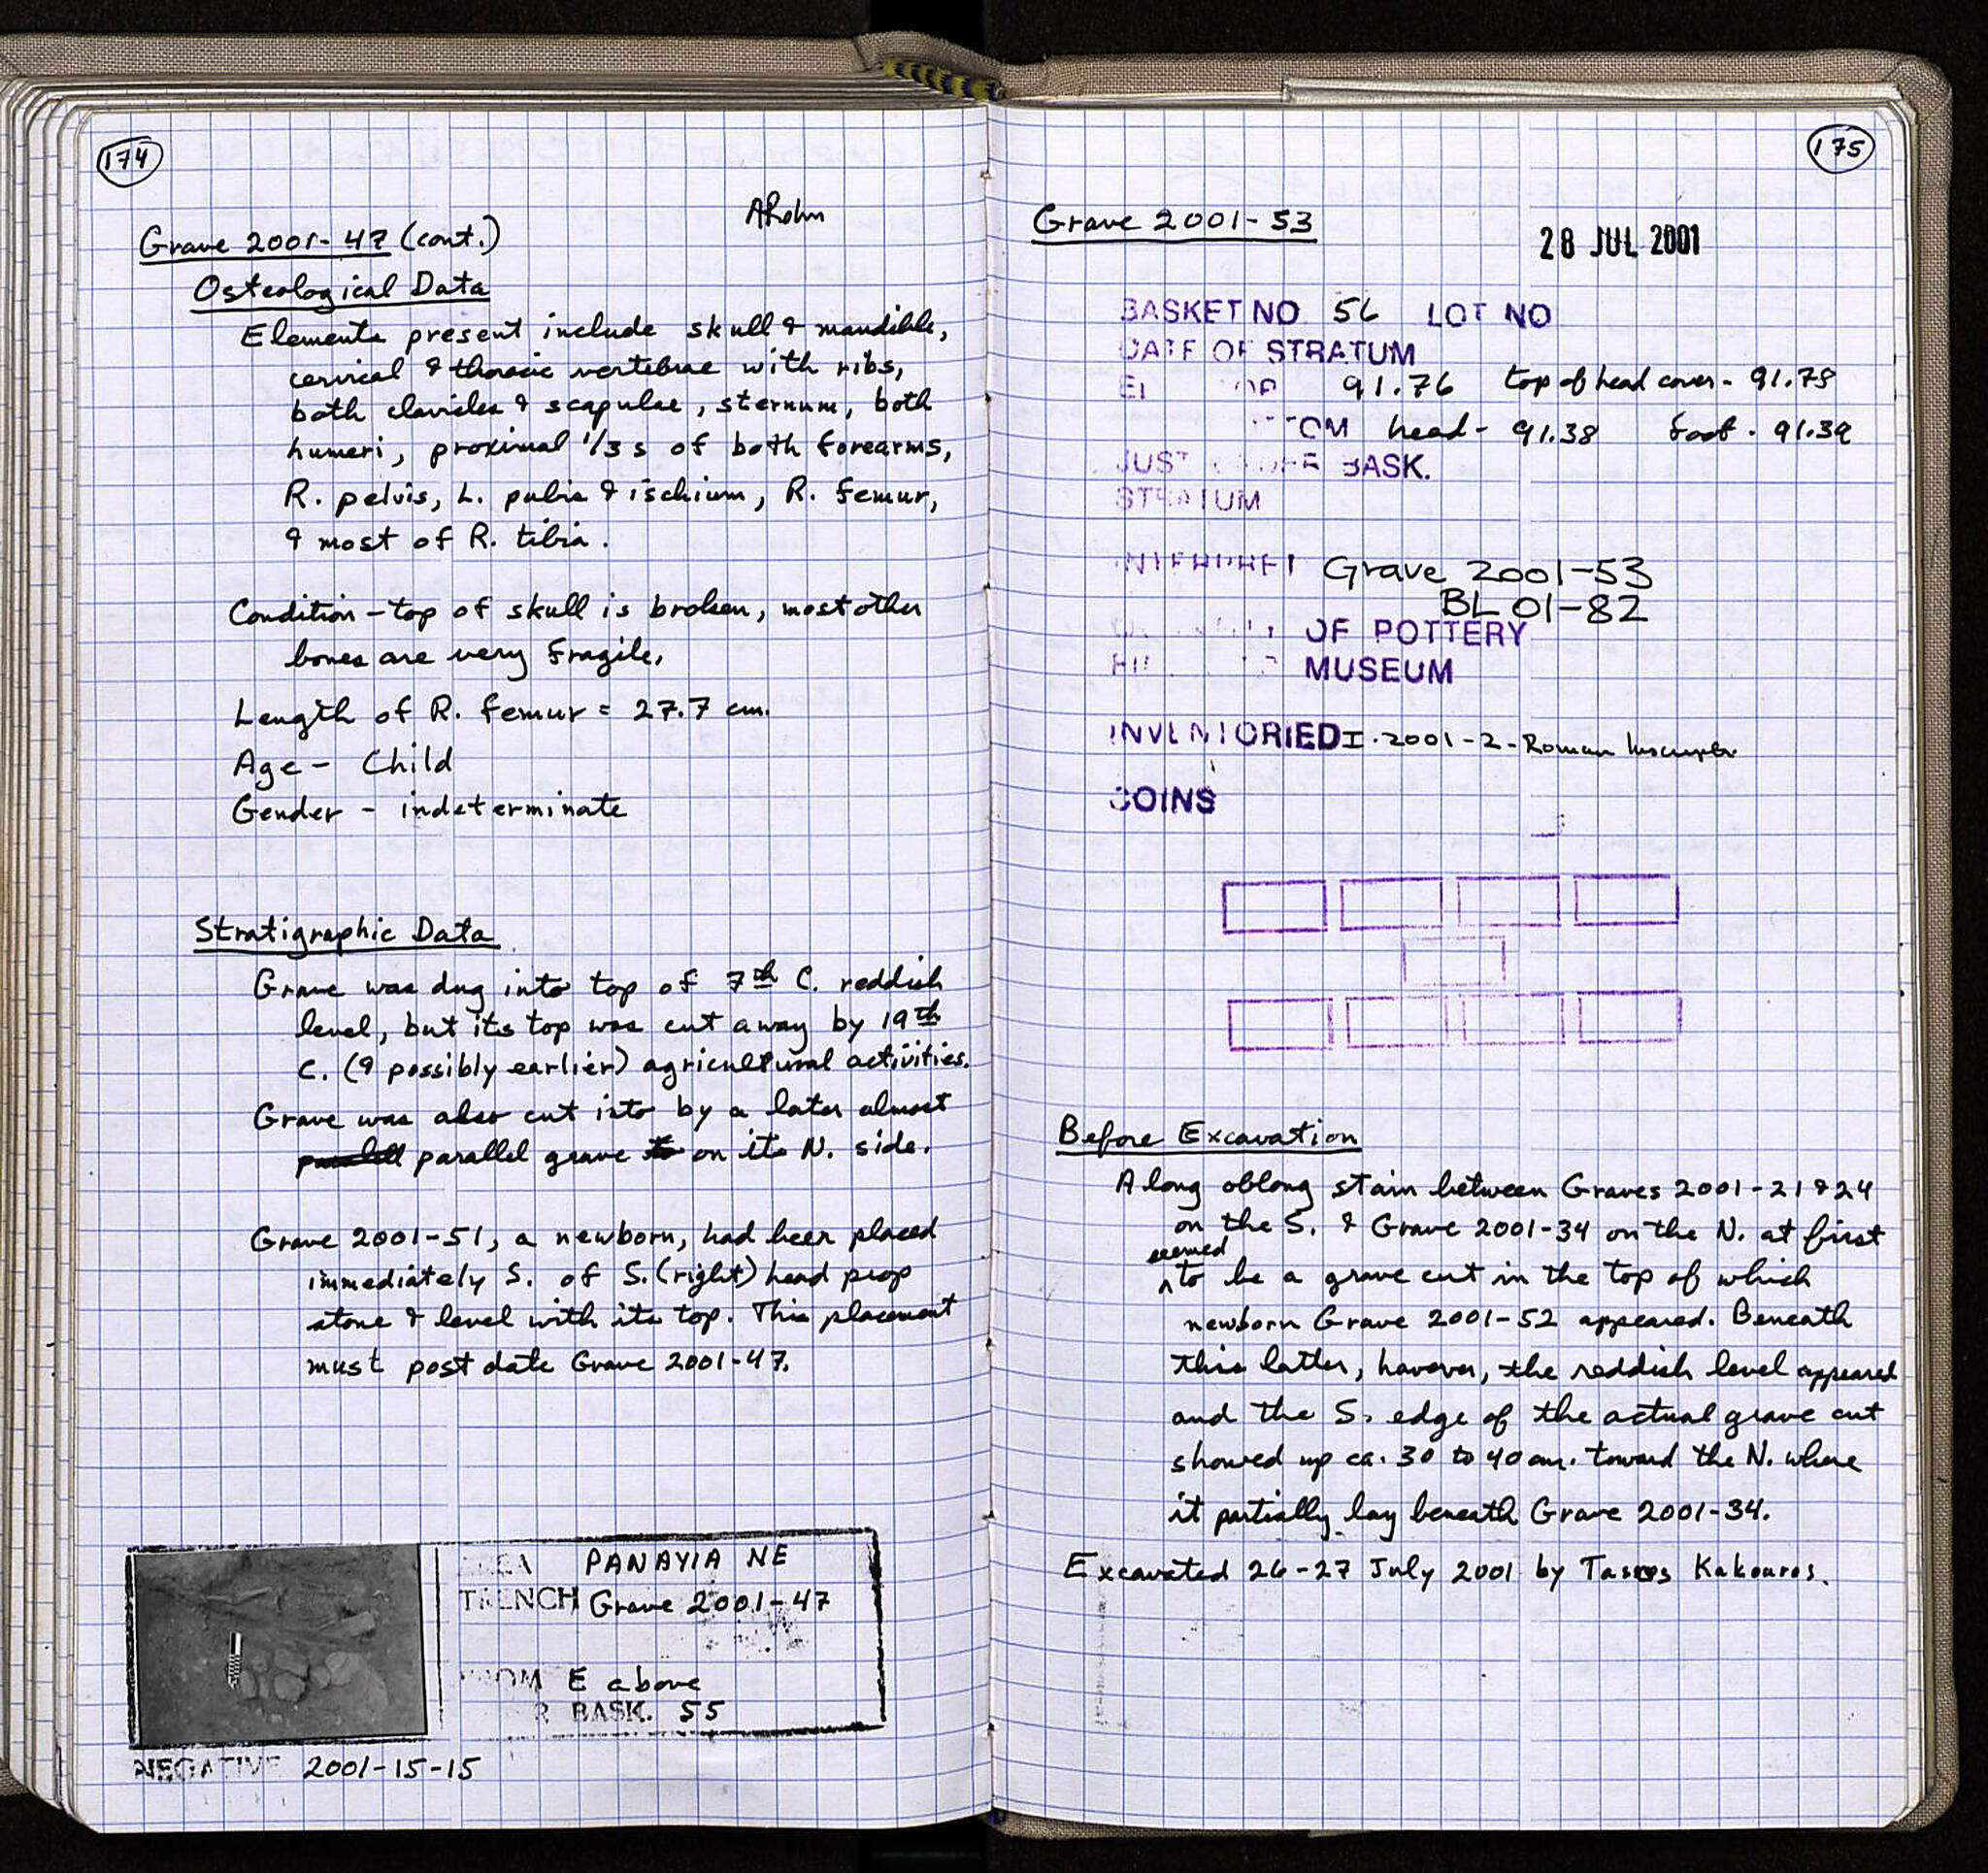 174
ARohn
Grave 2001-47 (cont.)
Osteological Data
Elements present include skull & mandible,
cervical & thoracic vertebrae with ribs,
both clavicles & scapulae, sternum, both
humeri, proximal 1/3 s of both forearms,
R. pelvis, L. pubis & ischium, R. femur,
& most of R. tibia.
Condition - top of skull is broken, most other
bones are very fragile.
Length of R. femur = 27.7 cm.
Age - Child
Gender - indeterminate
Stratigraphic Data
Grave was dug into top of 7th C. reddish
level, but its top was cut away by 19th
C. (& possibly earlier) agricultural activities.
Grave was also cut into by a later almost
parallel grave on its N. side.
Grave 2001-51, a newborn, had been placed
immediately S. of S. (right) head prop
stone & level with its top. This placement
must post date Grave 2001-47.
AREA PANAYIA NE
TRENCH Grave 2001-47
FROM E above
R BASK. 55
NEGATIVE 2001-15-15
175
Grave 2001-53
28 JUL 2001
BASKET NO. 56 LOT NO
DATE OF STRATUM
91.76 top of head cover - 91.78
head - 91.38 foot - 91.39
JUST UNDER BASK.
STRATUM
INTERPRET Grave 2001-53
BL 01-82
OF POTTERY
MUSEUM
INVENTORIED I-2001-2-Roman
COINS
Before Excavation
A long oblong stain between Graves 2001-21 & 24
on the S. & Grave 2001-34 on the N. at first
seemed
^to be a grave cut in the top of which
newborn Grave 2001-52 appeared. Beneath
this latter, however, the reddish level appeared
and the S. edge of the actual grave cut
showed up ca. 30 to 40 cm. toward the N. where
it partially lay beneath Grave 2001-34.
Excavated 26-27 July 2001 by Tassos Kakouros.